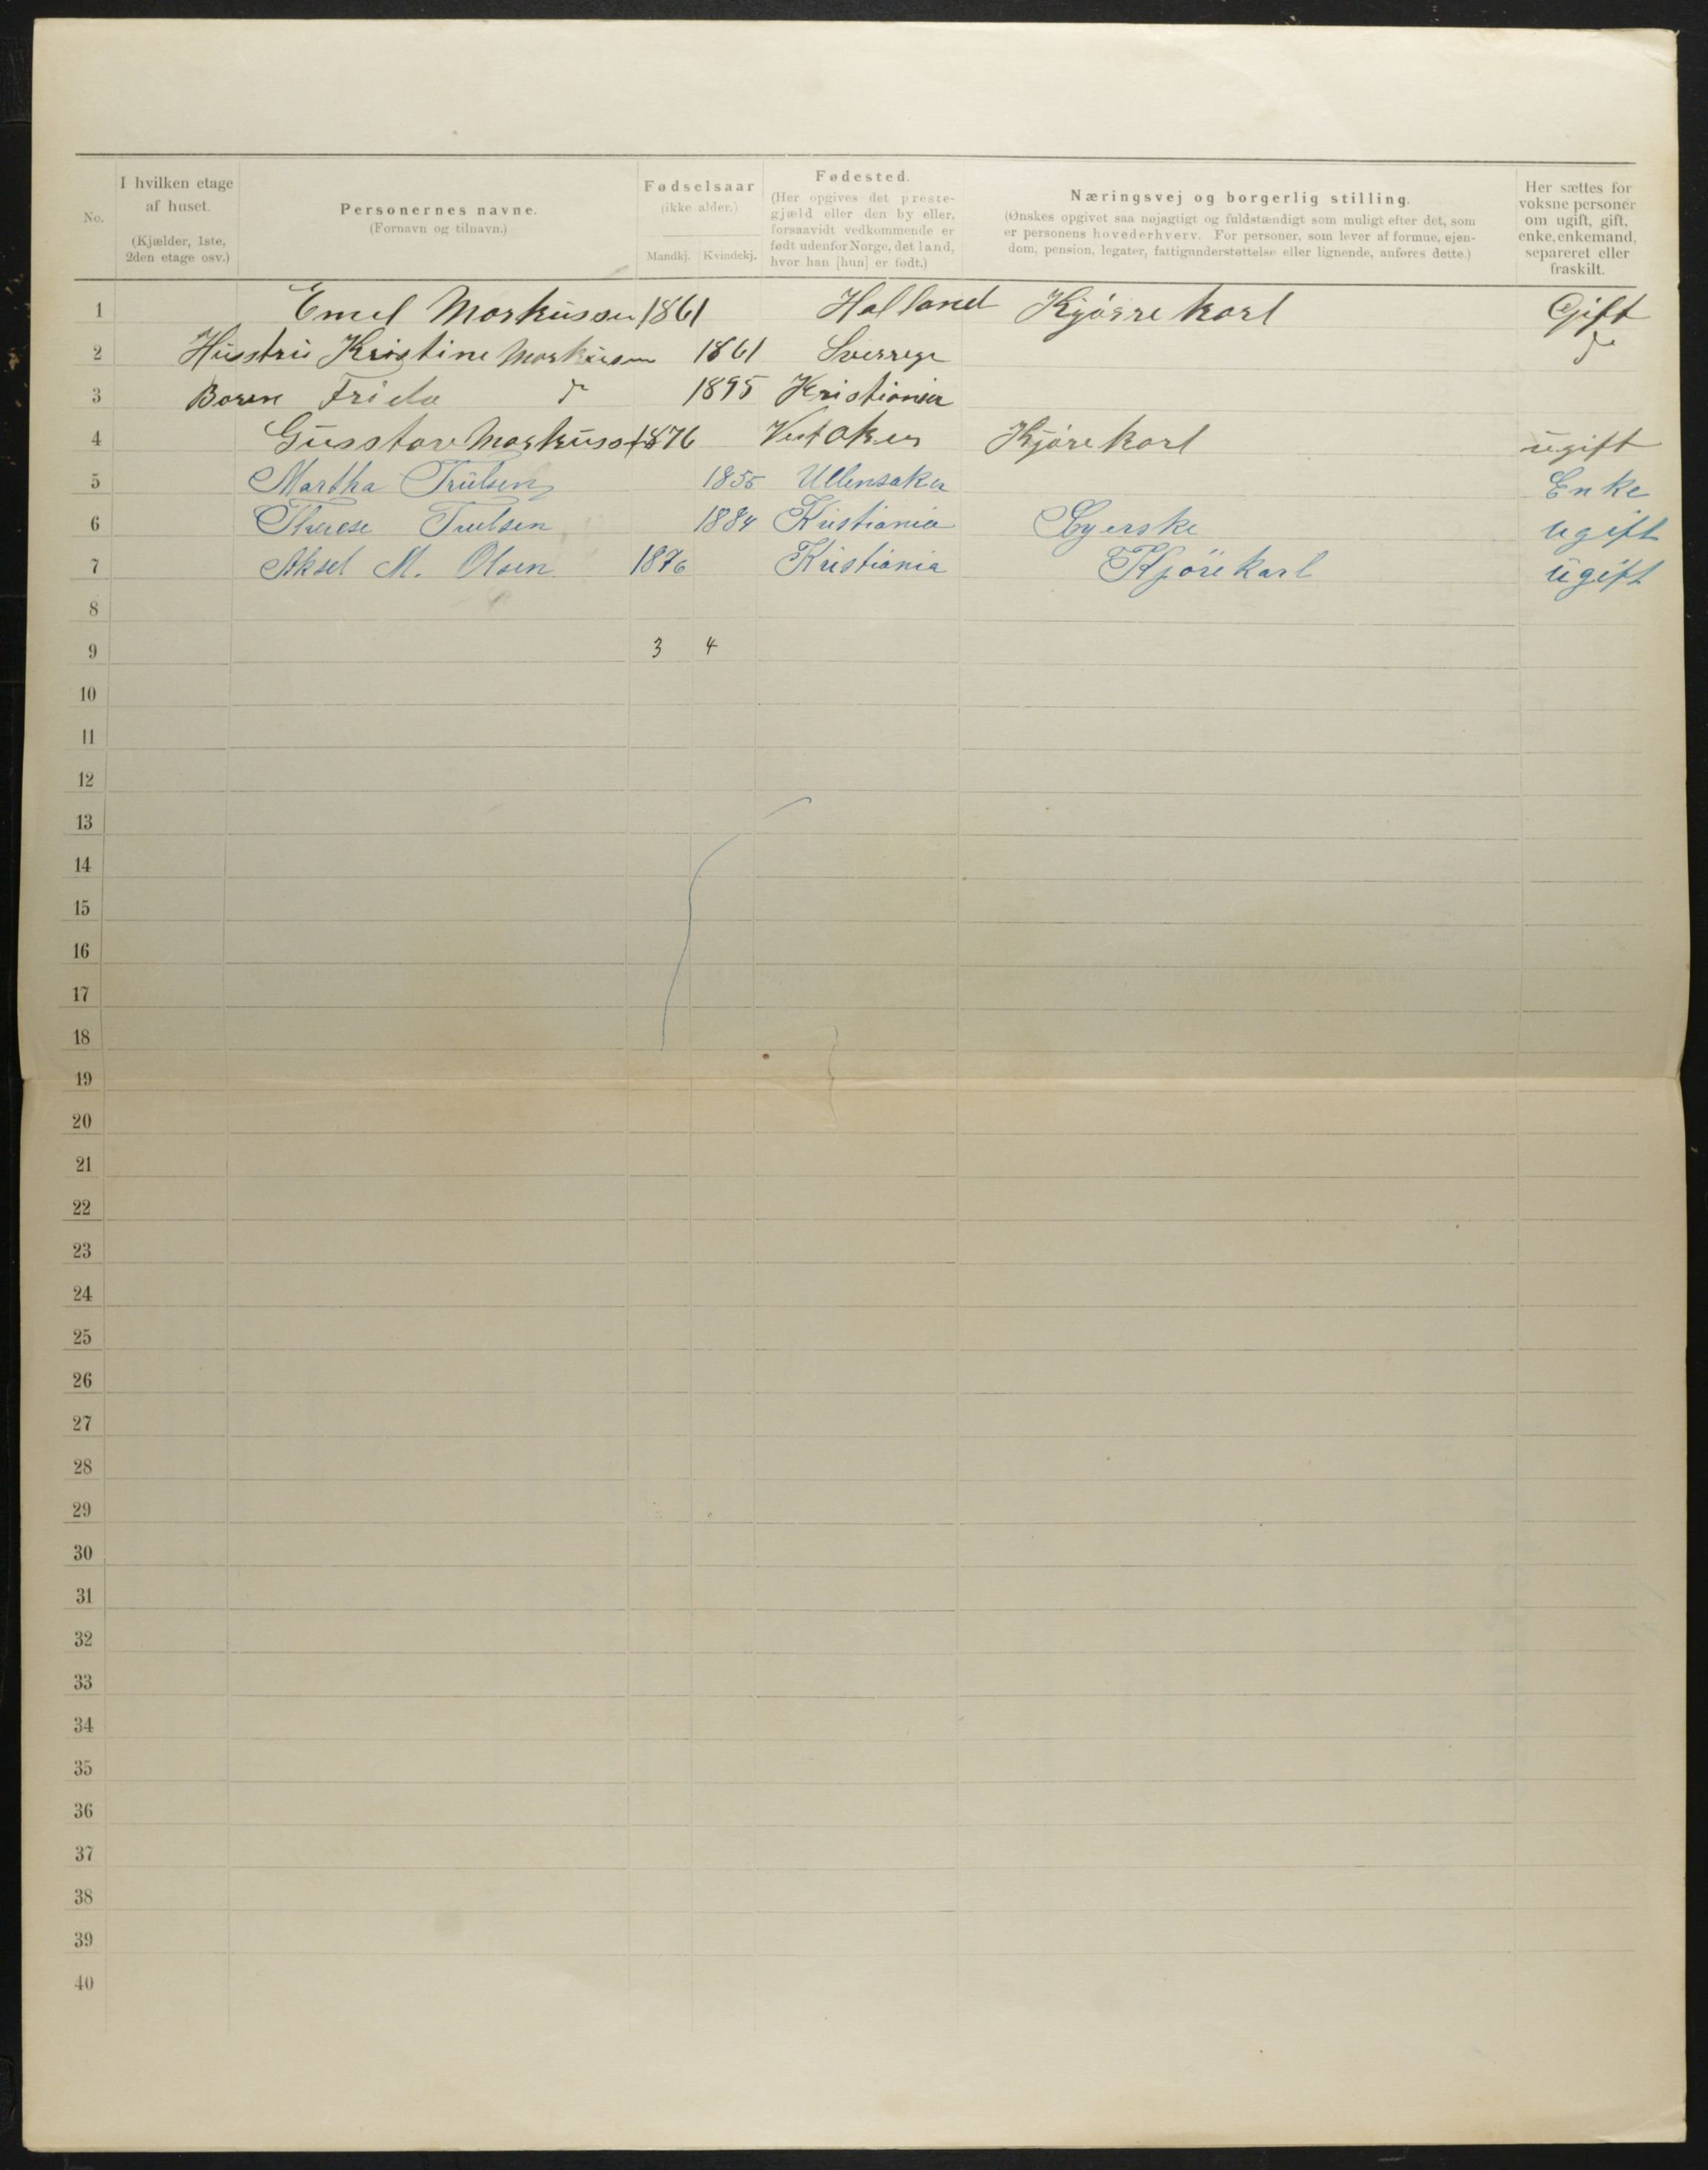 No.
I hvilken etage
af huset.
(Kjælder, 1ste,
2den etage osv.)
Personernes navne.
(Fornavn og tilnavn.)
Fødselsaar
(ikke alder.)
Mandkj. Kvindekj.
Fødested.
(Her opgives det preste-
gjæld eller den by eller,
forsaavidt vedkommende er
født udenfor Norge, det land,
hvor han [hun] er født.)
Næringsvej og borgerlig stilling.
(Ønskes opgivet saa nøjagtigt og fuldstændigt som muligt efter det, som
er personens hovederhverv. For personer, som lever af formue, ejen-
dom, pension, legater, fattigunderstøttelse eller lignende, anføres dette.)
Her sættes for
voksne personer
om ugift, gift,
enke, enkemand,
separeret eller
fraskilt.
1 Emel Markussen 1861 Halland Kjørre karl Gift
2 Husstru Kristine Markussen 1861 Sverrege do
3 Boren Frida do 1895 Kristiania
4 Gusstav Markuss 1876 Vestaker Kjøre karl ugift
5 Martha Trulsen 1855 Ullensaker Enke
6 Therese Trulsen 1884 Kristiania Syerske ugift
7 Aksel M. Olsen 1876 Kristiania Kjørekarl ugift
8
9 3 4
10
11
12
13
14
15
16
17
18
19
20
21
22
23
24
25
26
27
28
29
30
31
32
33
34
35
36
37
38
39
40